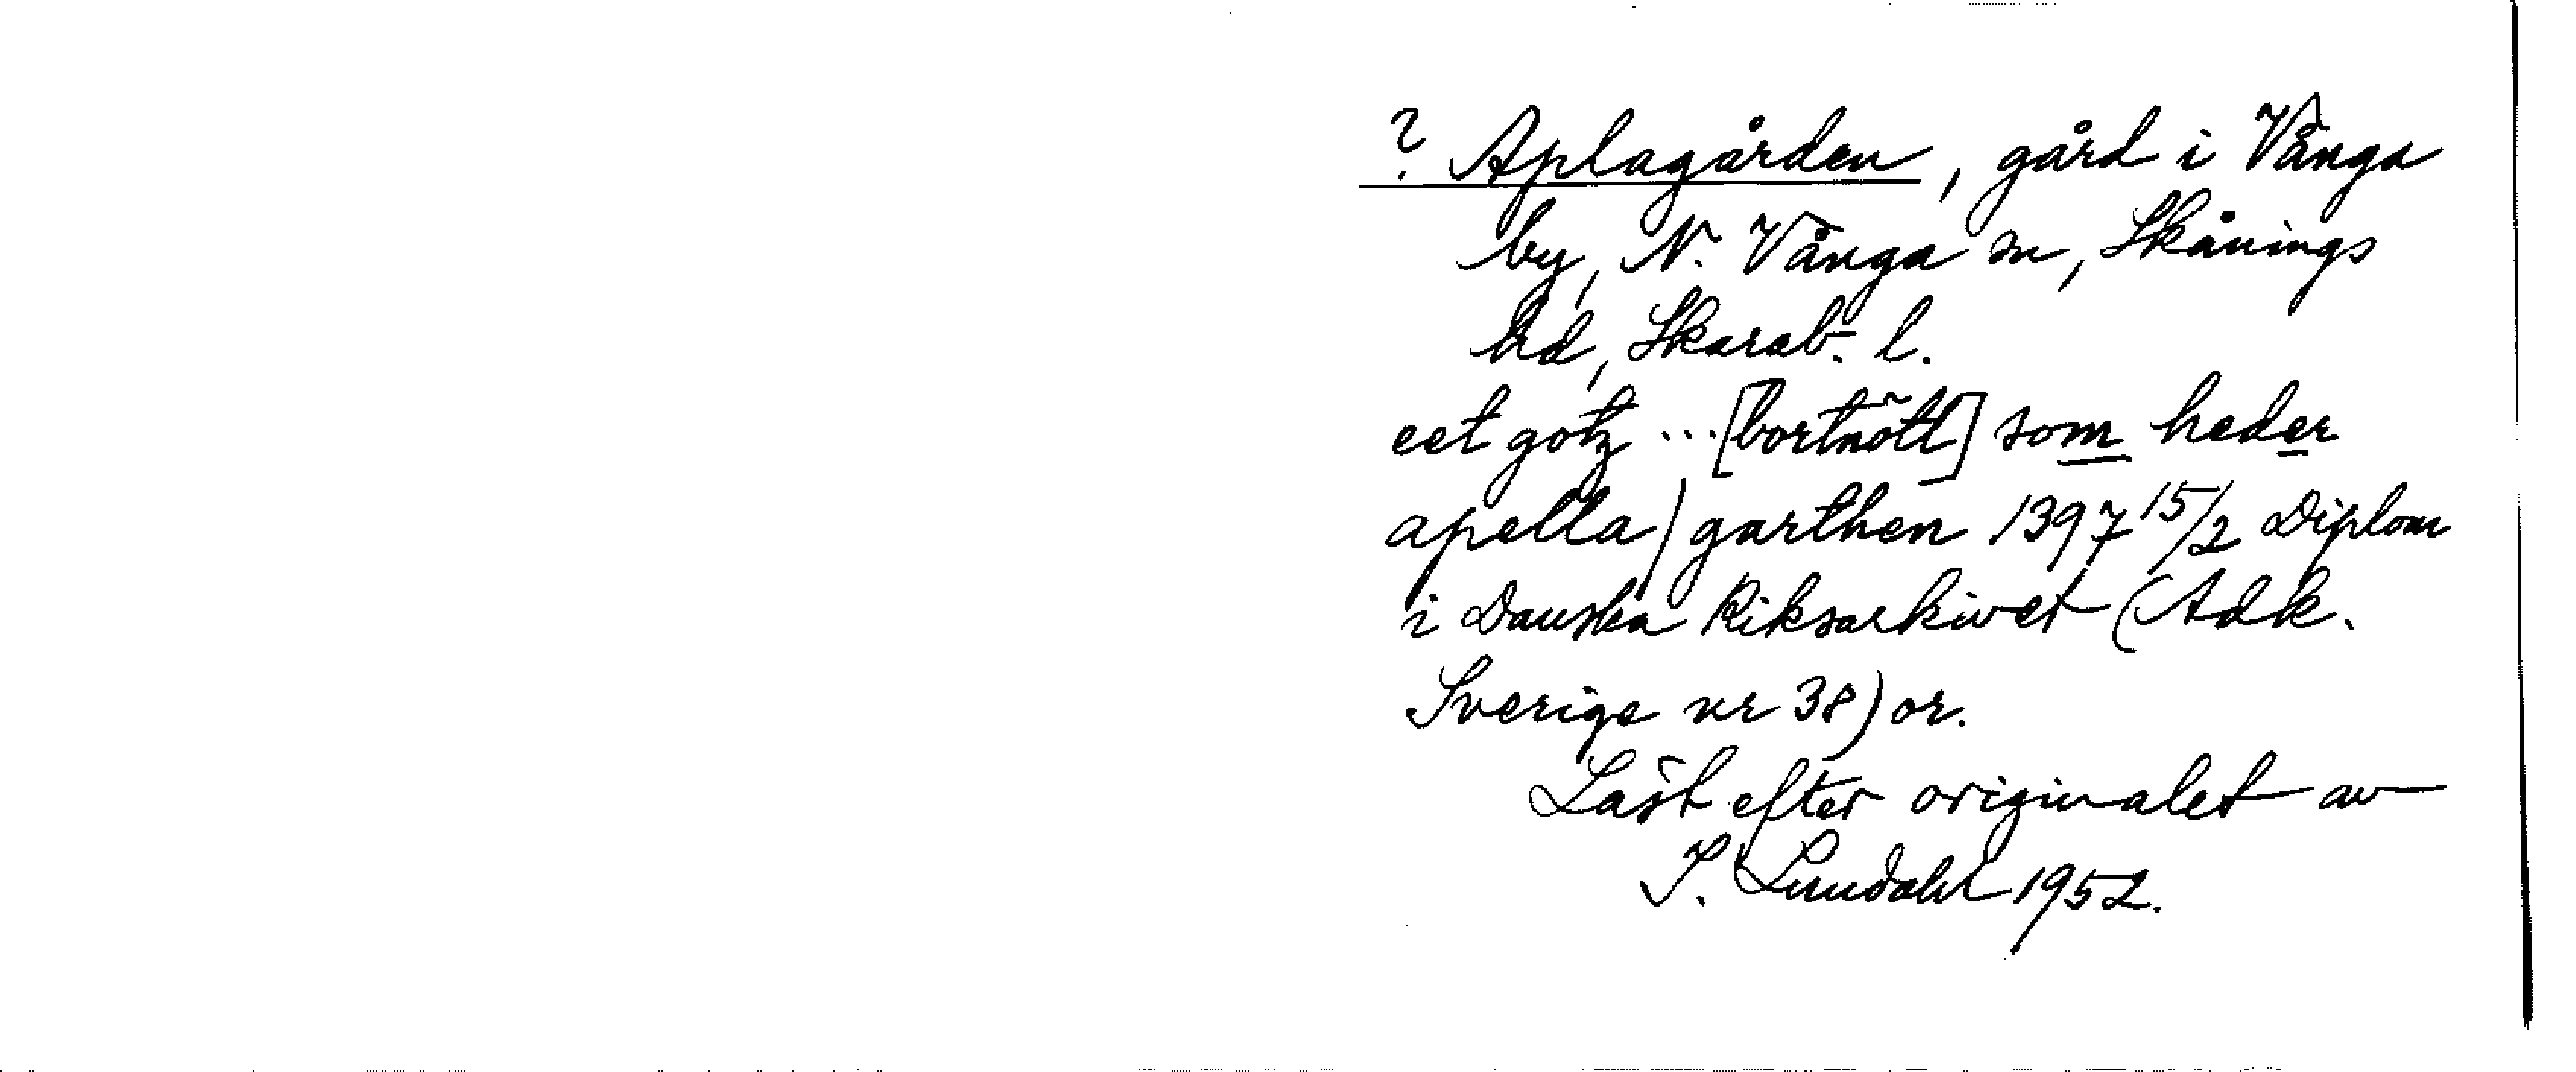 ? Aplagården, gård i Vånga
by, N. Vånga sn, Skånings
hd, Skarab. l.
eet gotz ... [bortnött] som heder
apella/garthen 1397 15/2 Diplom
i Danska Riksarkivet (Adk.
Sverige nr 38) or.
Läst efter originalet av
I. Lundahl 1952.